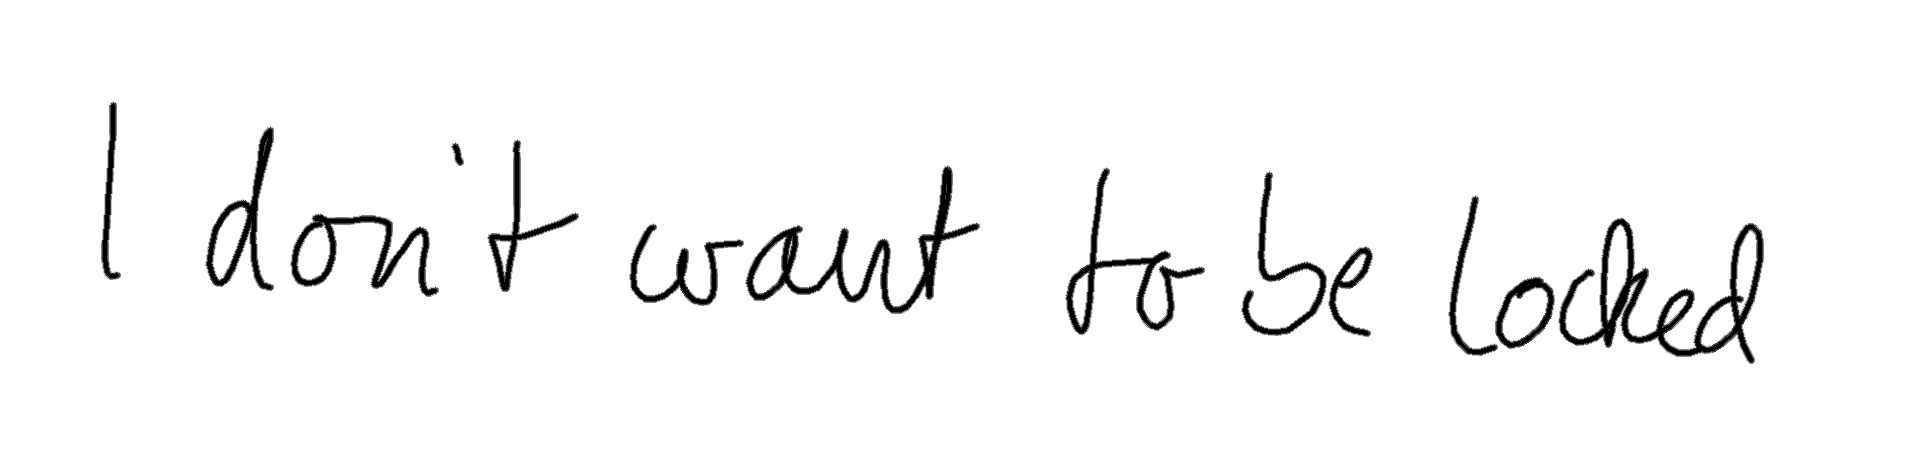 I don't want to be locked